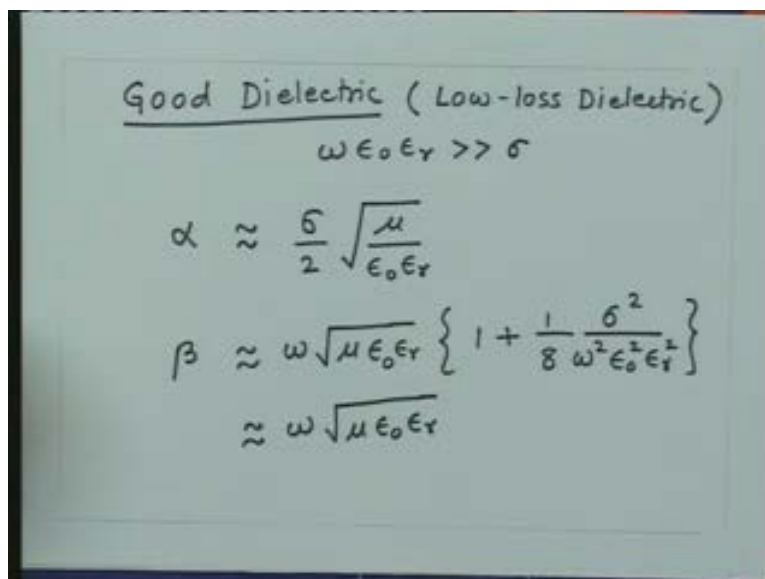 Good Dielectric (Low-loss Dielectric)
ω ϵ₀ ϵᵣ >> σ
α ≈ σ/2 √(μ/ϵ₀ϵᵣ)
β ≈ ω√(μϵ₀ϵᵣ) { 1 + 1/8 σ²/ω²ϵ₀²ϵᵣ² }
≈ ω√(μϵ₀ϵᵣ)